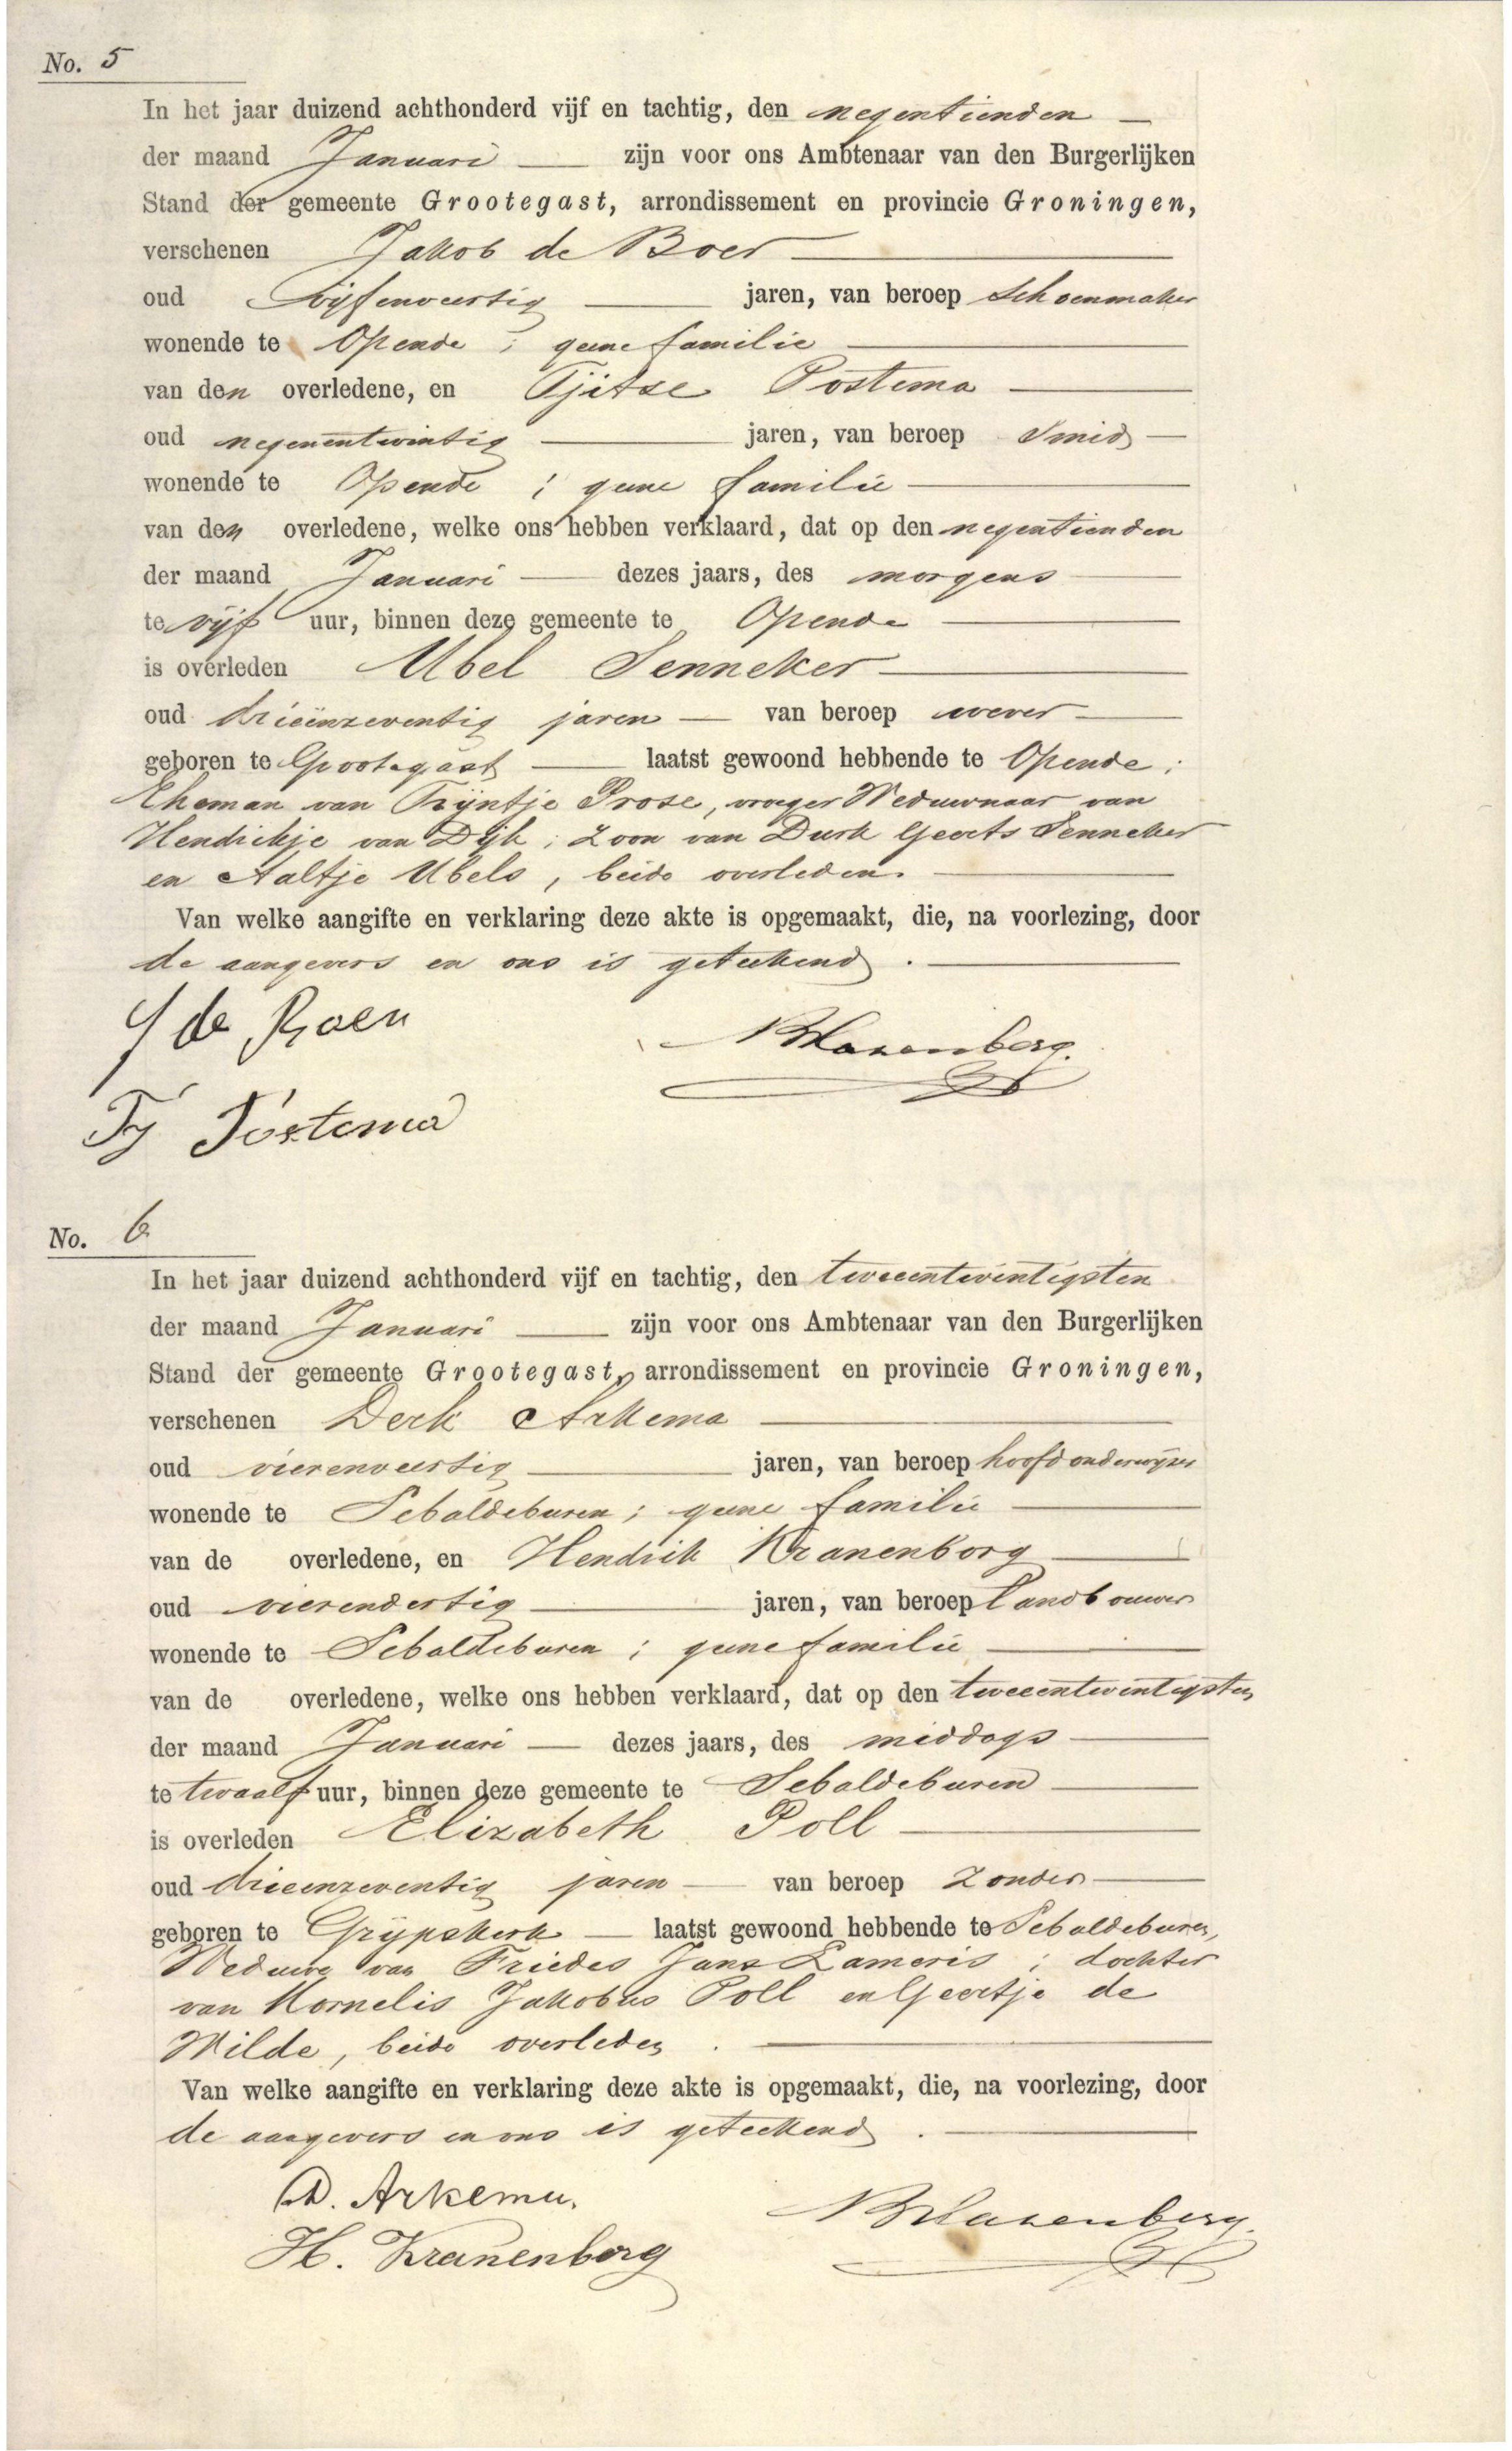 No. 5
In het jaar duizend achthonderd vijf en tachtig, den negentienden
der maand Januari zijn voor ons Ambtenaar van den Burgerlijken
Stand der gemeente Grootegast, arrondissement en provincie Groningen,
verschenen Jakob de Boer
oud vijfenveertig jaren, van beroep Schoenmaker
wonende te Opende ; geene familie
van den overledene, en Tjitse Postema
oud negenentwintig jaren, van beroep Smid
wonende te Opende ; geene familie
van den overledene, welke ons hebben verklaard, dat op den negentienden
der maand Januari dezes jaars, des morgens
te vijf uur, binnen deze gemeente te Opende
is overleden Ubel Senneker
oud drieënzeventig jaren van beroep wever
geboren te Grootegast laatst gewoond hebbende te Opende ;
Eheman van Trijntje Prose, vroeger Weduwnaar van
Hendrikje van Dijk ; Zoon van Durk Geerts Senneker
en Aaltje Ubels, beide overleden.
Van welke aangifte en verklaring deze akte is opgemaakt, die, na voorlezing, door
de aangevers en ons is geteekend .
J de Boer
Tj Postema
No. 6
In het jaar duizend achthonderd vijf en tachtig, den tweeentwintigsten
der maand Januari zijn voor ons Ambtenaar van den Burgerlijken
Stand der gemeente Grootegast, arrondissement en provincie Groningen,
verschenen Derk Arkema
oud vierenveertig jaren, van beroep hoofdonderwijzer
wonende te Sebaldeburen ; geene familie
van de overledene, en Hendrik Kranenborg
oud vierendertig jaren, van beroep Landbouwer
wonende te Sebaldeburen ; geene familie
van de overledene, welke ons hebben verklaard, dat op den tweeentwintigsten
der maand Januari dezes jaars, des middags
te twaalf uur, binnen deze gemeente te Sebaldeburen
is overleden Elizabeth Poll
oud drieenzeventig jaren van beroep Zonder
geboren te Grijpskerk laatst gewoond hebbende te Sebaldeburen,
Weduwe van Friedes Jans Lameris ; dochter
van Kornelis Jakobus Poll en Geertje de
Wilde, beide overleden .
Van welke aangifte en verklaring deze akte is opgemaakt, die, na voorlezing, door
de aangevers en ons is geteekend .
D. Arkema.
H. Kranenborg